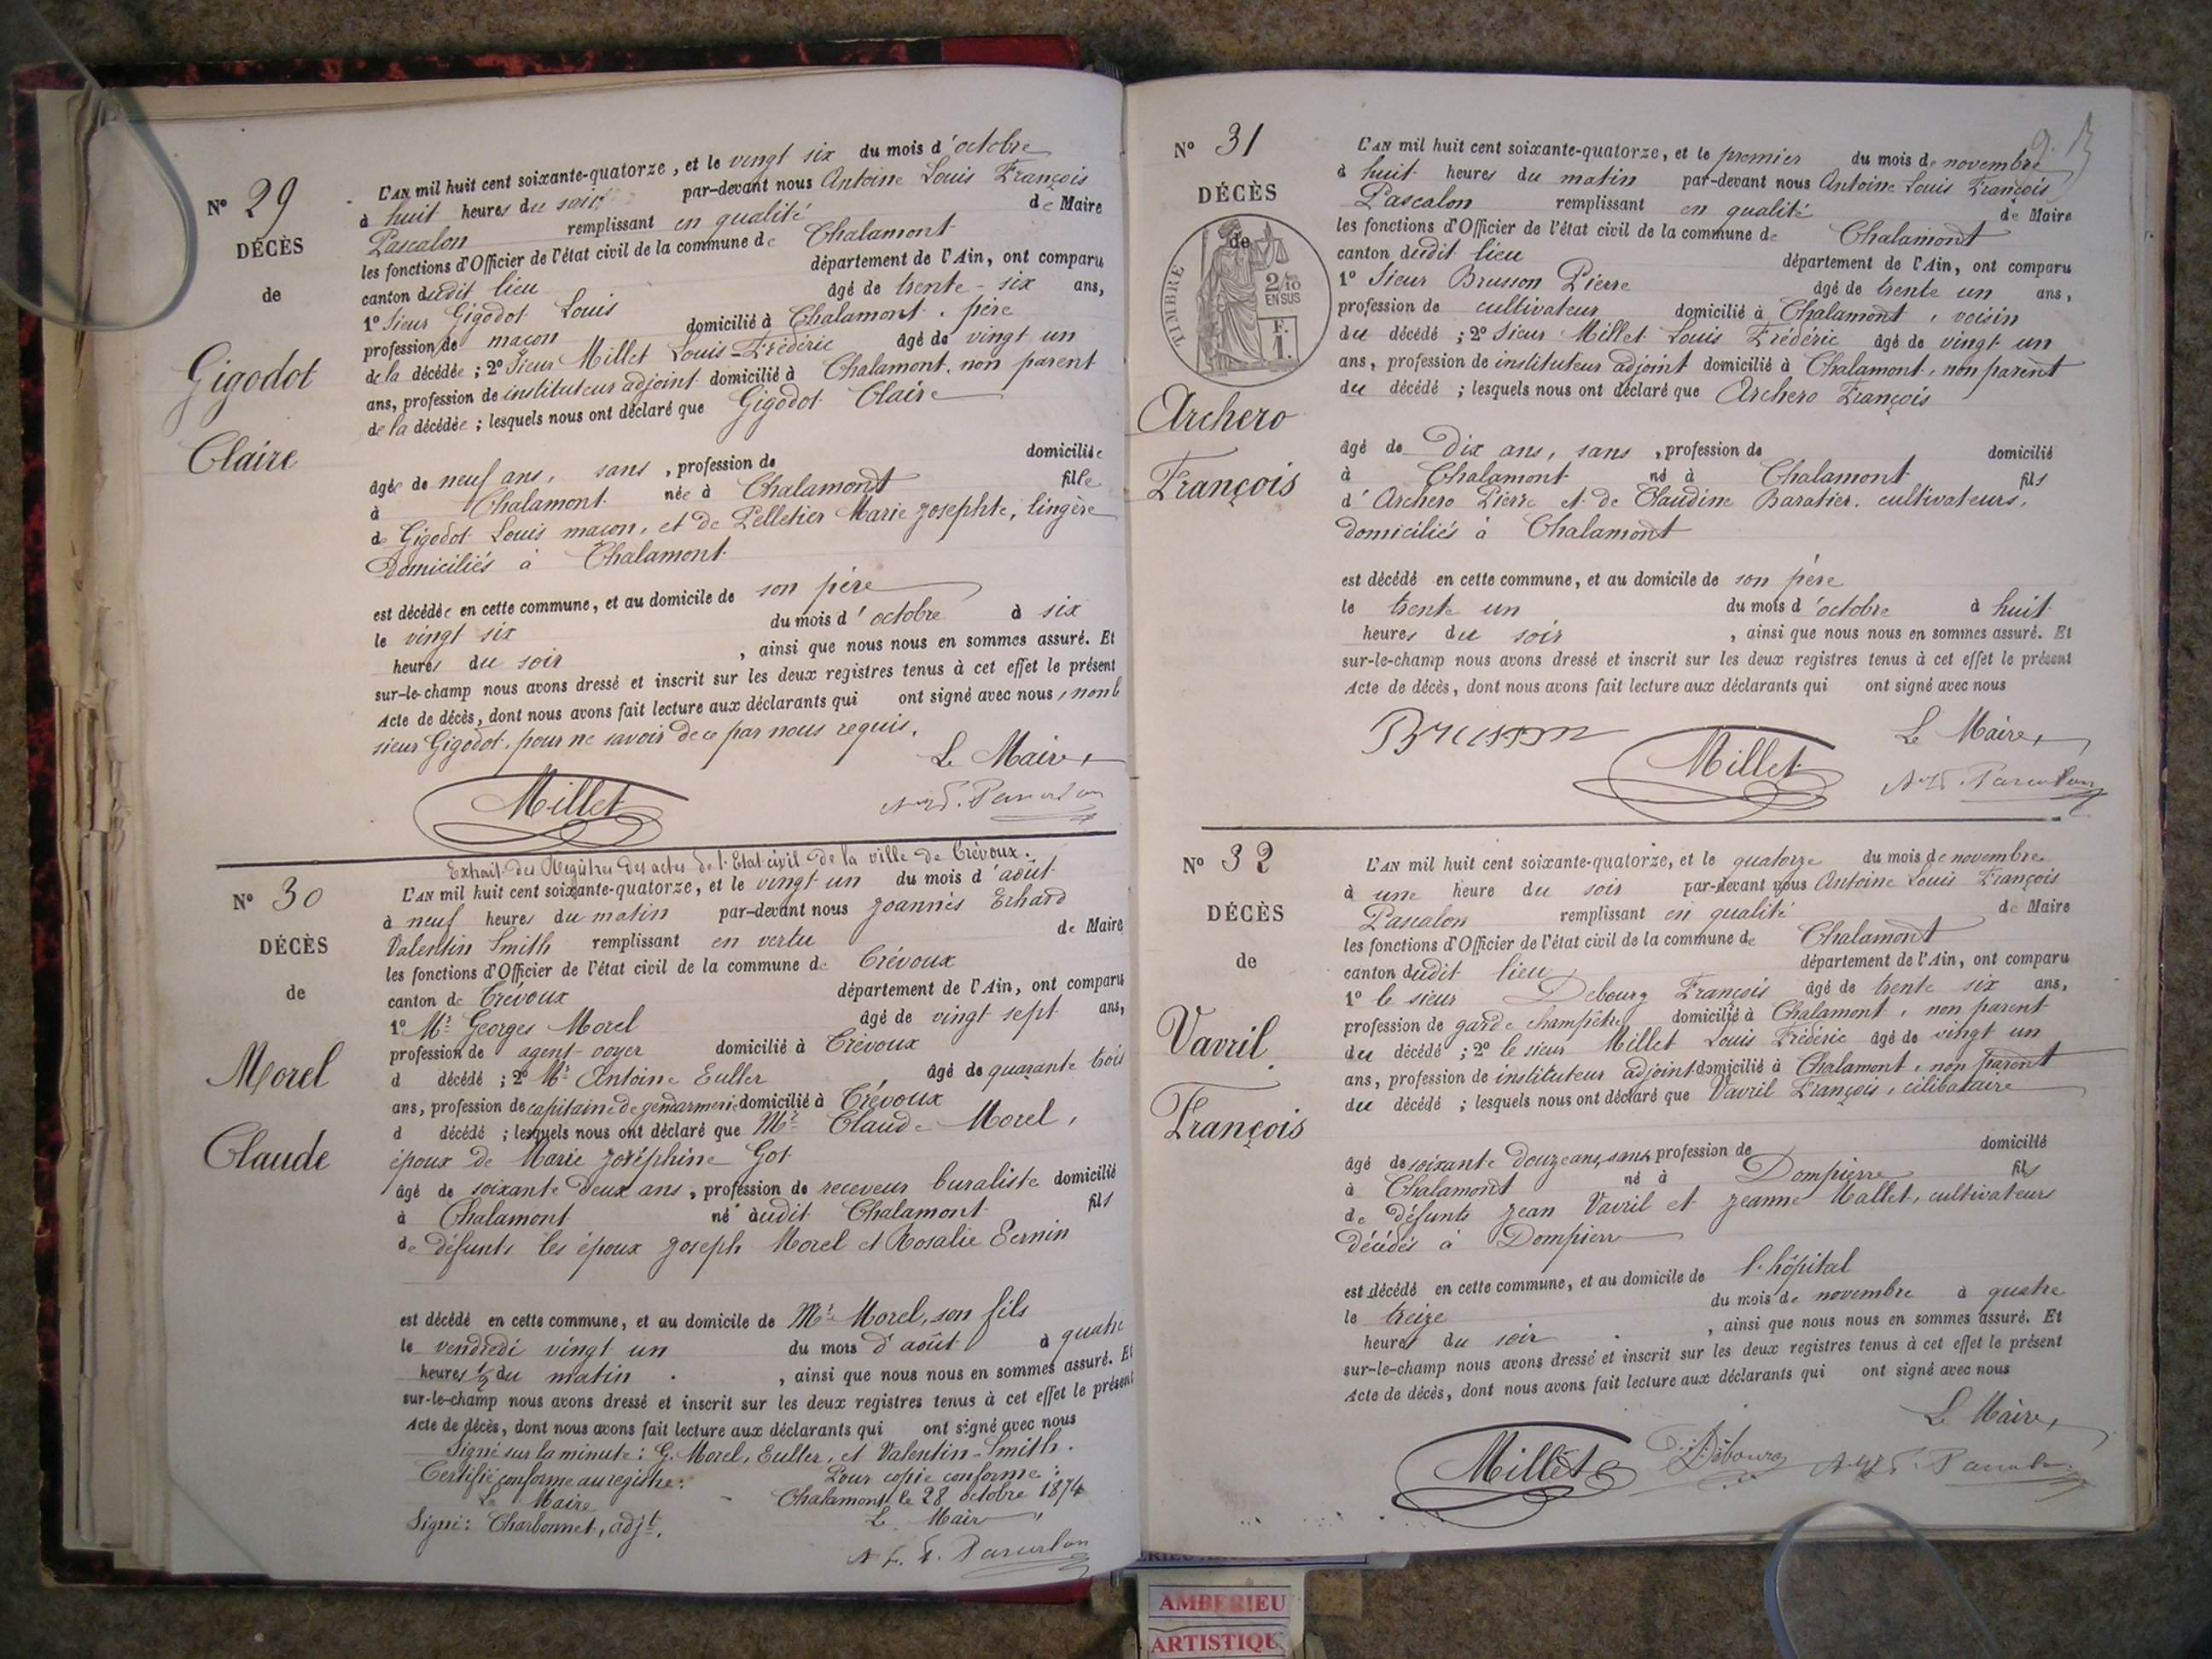 N° 29
DÉCÈS
de
Gigodot
Claire
L'AN mil huit cent soixante-quatorze, et le vingt six du mois d'octobre
à huit heures du soir par-devant nous Antoine Louis François
Pascalon remplissant en qualité de Maire
les fonctions d'Officier de l'état civil de la commune de Chalamont
canton dudit lieu département de l'Ain, ont comparu
1° Sieur Gigodot Louis âgé de trente-six ans,
profession de maçon domicilié à Chalamont, père
de la décédée ; 2° Sieur Millet Louis-Frédéric âgé de vingt un
ans, profession de instituteur adjoint domicilié à Chalamont, non parent
de la décédée ; lesquels nous ont déclaré que Gigodot Claire
âgée de neuf ans, sans, profession de domiciliée
à Chalamont née à Chalamont fille
de Gigodot Louis maçon, et de Pelletier Marie Josephte, lingère
Domiciliés à Chalamont
est décédée en cette commune, et au domicile de son père
le vingt six du mois d'octobre à six
heures du soir, ainsi que nous nous en sommes assuré. Et
sur-le-champ nous avons dressé et inscrit sur les deux registres tenus à cet effet le présent
Acte de décès, dont nous avons fait lecture aux déclarants qui ont signé avec nous, non le
sieur Gigodot, pour ne savoir de ce par nous requis.
Le Maire,
Millet
Extrait des Registres des actes de l'Etat civil de la ville de Trévoux.
N° 30
DÉCÈS
de
Morel
Claude
L'AN mil huit cent soixante-quatorze, et le vingt-un du mois d'août
à neuf heures du matin par-devant nous Joannès Erhard
Valentin Smith remplissant en vertu de Maire
les fonctions d'Officier de l'état civil de la commune de Trévoux
canton de Trévoux département de l'Ain, ont comparu
1° Mr Georges Morel âgé de vingt sept ans,
profession de agent-voyer domicilié à Trévoux
d décédé ; 2° Mr Antoine Euller âgé de quarante trois
ans, profession de capitaine de gendarmerie domicilié à Trévoux
d décédé ; lesquels nous ont déclaré que Mr Claude Morel,
époux de Marie Joséphine Got
âgé de soixante deux ans, profession de receveur buraliste domicilié
à Chalamont né audit Chalamont fils
de défunts les époux Joseph Morel et Rosalie Pernin
est décédé en cette commune, et au domicile de Mr Morel, son fils
le vendredi vingt un du mois d'août à quatre
heures 1/2 du matin, ainsi que nous nous en sommes assuré. Et
sur-le-champ nous avons dressé et inscrit sur les deux registres tenus à cet effet le présent
Acte de décès, dont nous avons fait lecture aux déclarants qui ont signé avec nous
Signé sur la minute : G. Morel, Euller, et Valentin-Smith.
Certifié conforme au registre : Pour copie conforme :
Le Maire Chalamont le 28 octobre 1874
Signé : Charbonnet, adjt. Le Maire,
A. L. F. Pascalon
N° 31
DÉCÈS
de
TIMBRE
2/10
EN SUS
F.
1.
Archero
François
L'AN mil huit cent soixante-quatorze, et le premier du mois de novembre
à huit heures du matin par-devant nous Antoine Louis François
Pascalon remplissant en qualité de Maire
les fonctions d'Officier de l'état civil de la commune de Chalamont
canton dudit lieu département de l'Ain, ont comparu
1° Sieur Brusson Pierre âgé de trente un ans,
profession de cultivateur domicilié à Chalamont, voisin
du décédé ; 2° Sieur Millet Louis Frédéric âgé de vingt un
ans, profession de instituteur adjoint domicilié à Chalamont, non parent
du décédé ; lesquels nous ont déclaré que Archero François
âgé de Dix ans, sans, profession de domicilié
à Chalamont né à Chalamont fils
d'Archero Pierre et de Claudine Baratier, cultivateurs,
domiciliés à Chalamont
est décédé en cette commune, et au domicile de son père
le trente un du mois d'octobre à huit
heures du soir, ainsi que nous nous en sommes assuré. Et
sur-le-champ nous avons dressé et inscrit sur les deux registres tenus à cet effet le présent
Acte de décès, dont nous avons fait lecture aux déclarants qui ont signé avec nous
Brusson Millet Le Maire,
N° 32
DÉCÈS
de
Vavril
François
L'AN mil huit cent soixante-quatorze, et le quatorze du mois de novembre
à une heure du soir par-devant nous Antoine Louis François
Pascalon remplissant en qualité de Maire
les fonctions d'Officier de l'état civil de la commune de Chalamont
canton dudit lieu département de l'Ain, ont comparu
1° le sieur Debourg François âgé de trente six ans,
profession de garde champêtre domicilié à Chalamont, non parent
du décédé ; 2° le sieur Millet Louis Frédéric âgé de vingt un
ans, profession de instituteur adjoint domicilié à Chalamont, non parent
du décédé ; lesquels nous ont déclaré que Vavril François, célibataire
âgé de soixante douze ans, sans profession de domicilié
à Chalamont né à Dompierre fils
de défunts Jean Vavril et Jeanne Mallet, cultivateurs
décédés à Dompierre
est décédé en cette commune, et au domicile de l'hôpital
le treize du mois de novembre à quatre
heures du soir, ainsi que nous nous en sommes assuré. Et
sur-le-champ nous avons dressé et inscrit sur les deux registres tenus à cet effet le présent
Acte de décès, dont nous avons fait lecture aux déclarants qui ont signé avec nous
Le Maire,
Millet Debourg
AMBERIEU
ARTISTIQU